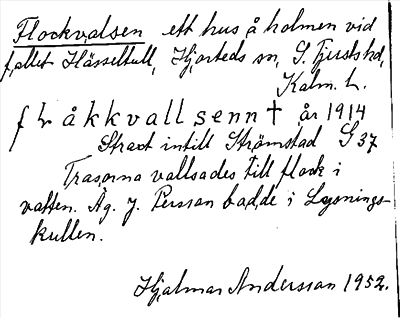 Flockvalsen ett hus å holmen vid
fallet Hässeltull, Hjorteds sn, S. Tjusts hd,
Kalm. L.
flåkkvallsenn † år 1914
Straxt intill Strömstad S 37
Trasorna vallsades till flock i
vatten. Äg. J. Persson bodde i Lysnings-
kullen.
Hjalmar Andersson 1952.